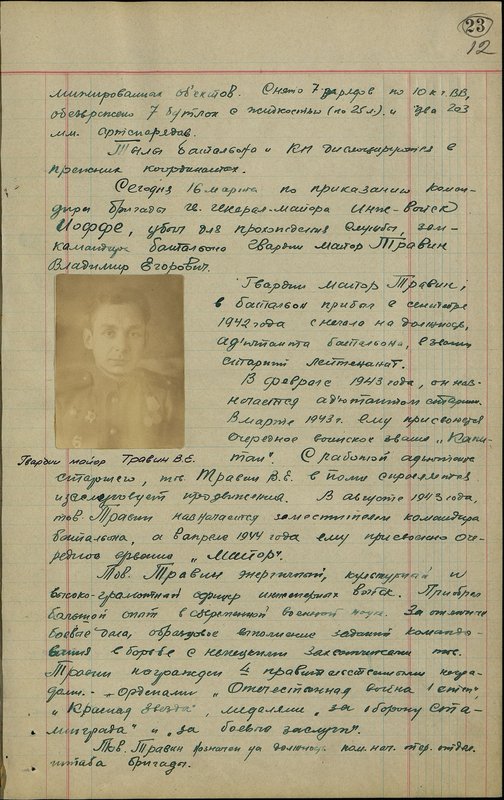 23
12
минированных объектов. Снято 7 зарядов по 10 кг. ВВ,
обезврежено 7 бутылок с жидкостью (по 25 л.) и два 203
мм. артснаряда.
Тылы батальона и КП дислоцируются в
прежних координатах.
Сегодня 16 марта по приказанию коман-
дира бригады гв. генерал-майора инж-войск
ИОФФЕ, убыл для прохождения службы, зам-
командира батальона гвардии майор Травин
Владимир Егорович.
Гвардии майор Травин,
в батальон прибыл в сентябре
1942 года с начала на должность,
адъютанта батальона, в звании
старший лейтенант.
В феврале 1943 года, он наз-
начается адъютантом старшим.
В марте 1943 г. ему присвоется
очередное воинское звание „Капи-
Гвардии майор Травин В.Е.
тан". С работой адъютанта
старшего, тов. Травин В.Е. вполне справляется
и следует продвижения. В августе 1943 года,
тов. Травин назначается заместителем командира
батальона, а в апреле 1944 года ему присвоено оче-
редное звание „Майор".
Тов. Травин энергичный, культурный и
высоко-грамотный офицер инженерных войск. Приобрел
большой опыт в современной военной науке. За отличные
боевые дела, образцовое выполнение заданий командо-
вания в борьбе с немецкими захватчиками тов.
Травин награжден 4 правительственными награ-
дами. - орденами „Отечественная война 1 степ"
„Красная звезда", медалями „за оборону Ста-
линграда" и „за боевые заслуги".
Тов. Травин назначен на должность пом. нач. опер. отдел.
штаба бригады.